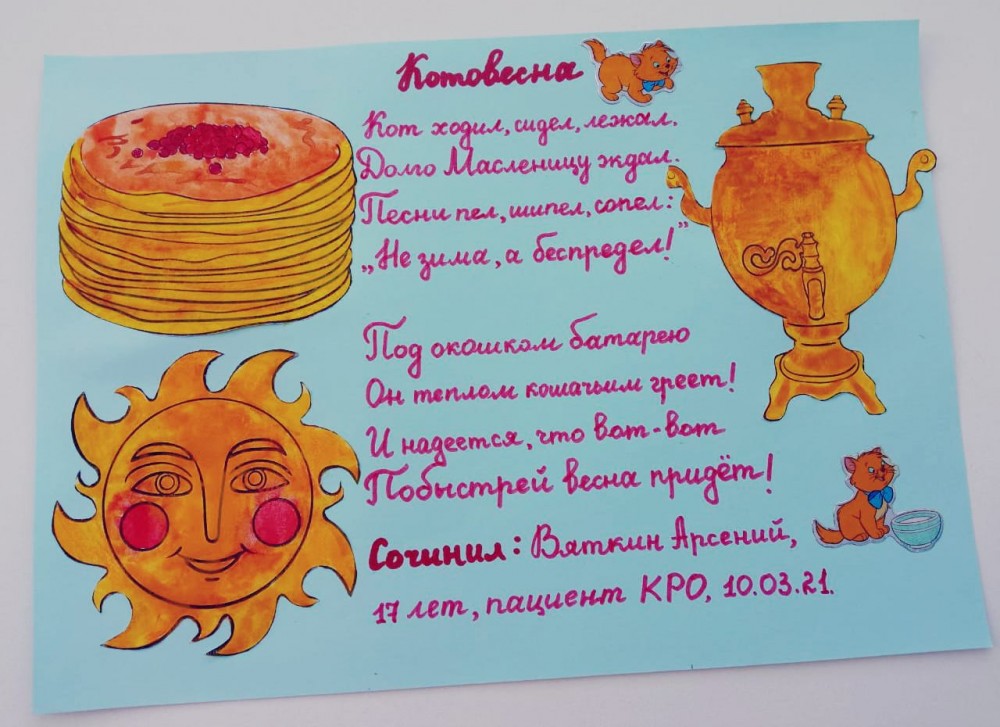 Котовесна
Кот ходил, сидел, лежал.
Долго Масленицу ждал.
Песни пел, шипел, сопел:
„Не зима, а беспредел!"
Под окошком батарею
Он теплом кошачьим греет!
И надеется, что вот-вот
Побыстрей весна придёт!
Сочинил: Вяткин Арсений,
17 лет, пациент КРО, 10.03.21.